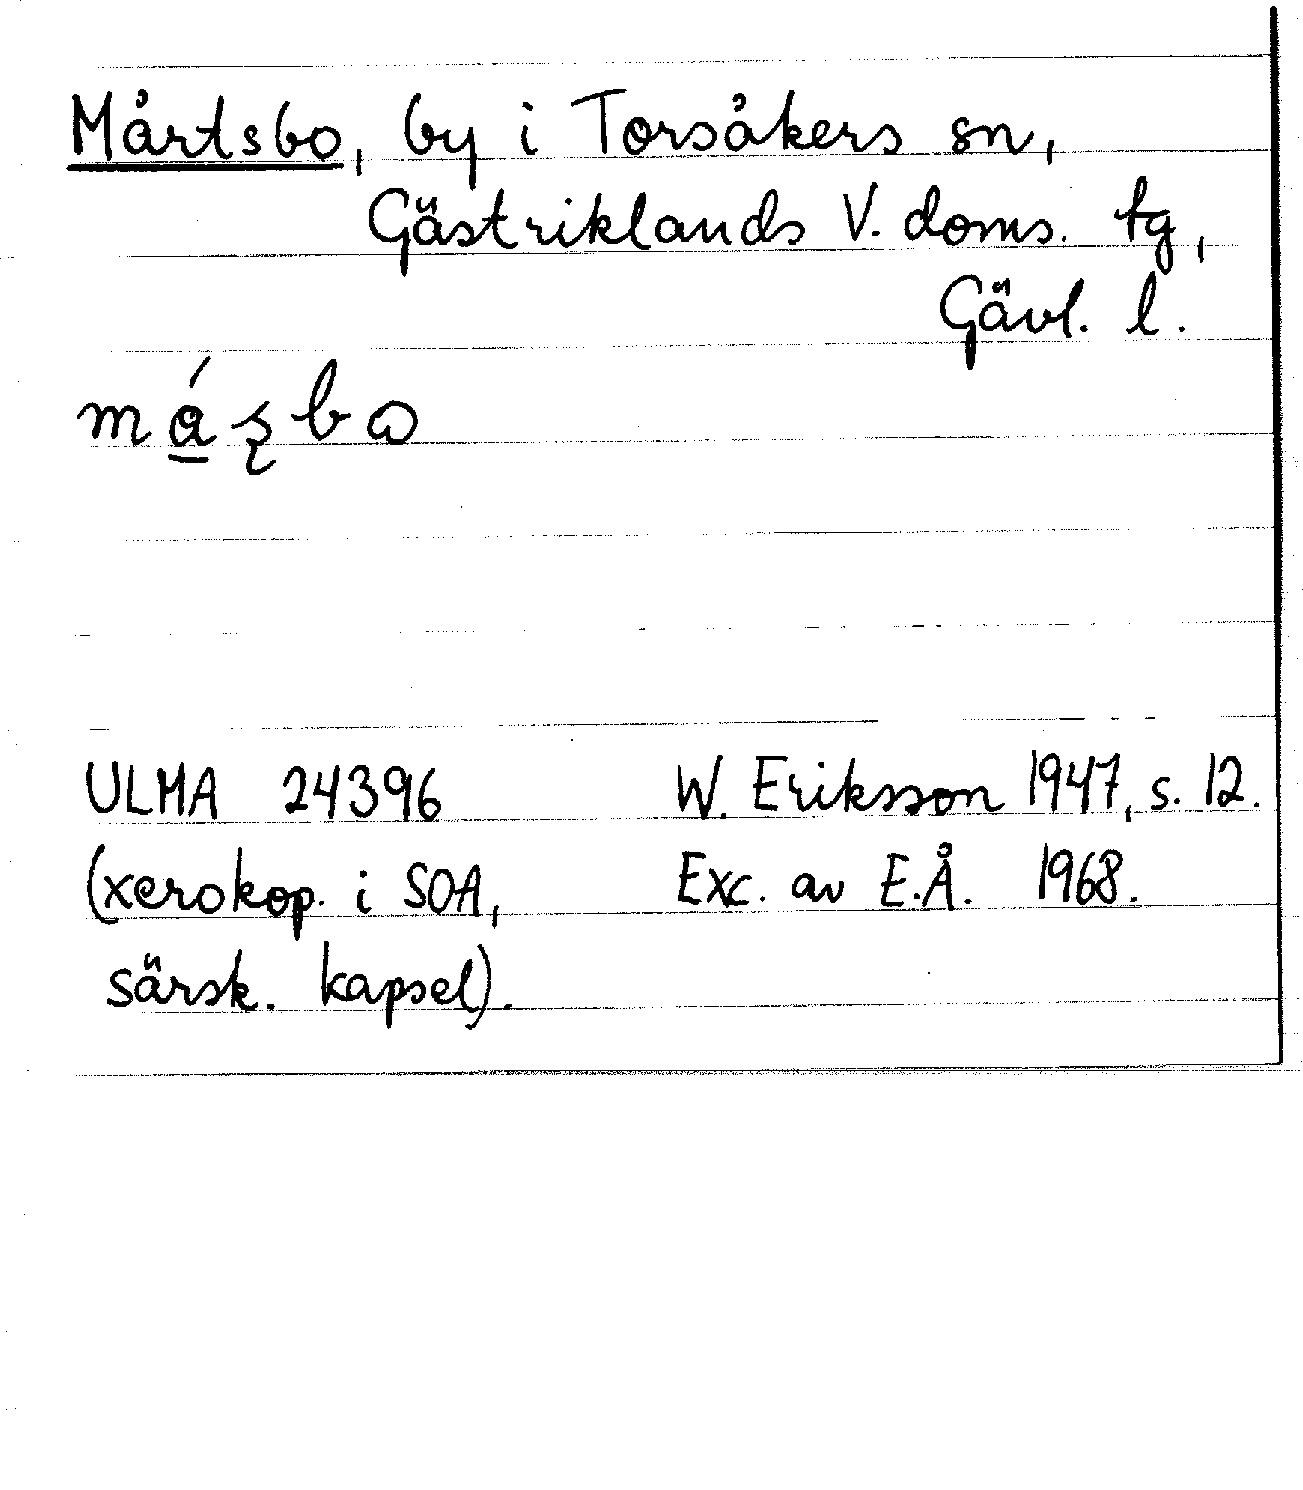 Mårtsbo, by i Torsåkers sn,
Gästriklands V. doms. tg,
Gävl. l.
ULMA 24396 W. Eriksson 1947, s. 12.
(xerokop. i SOA, Exc. av E.Å. 1968.
särsk. kapsel).